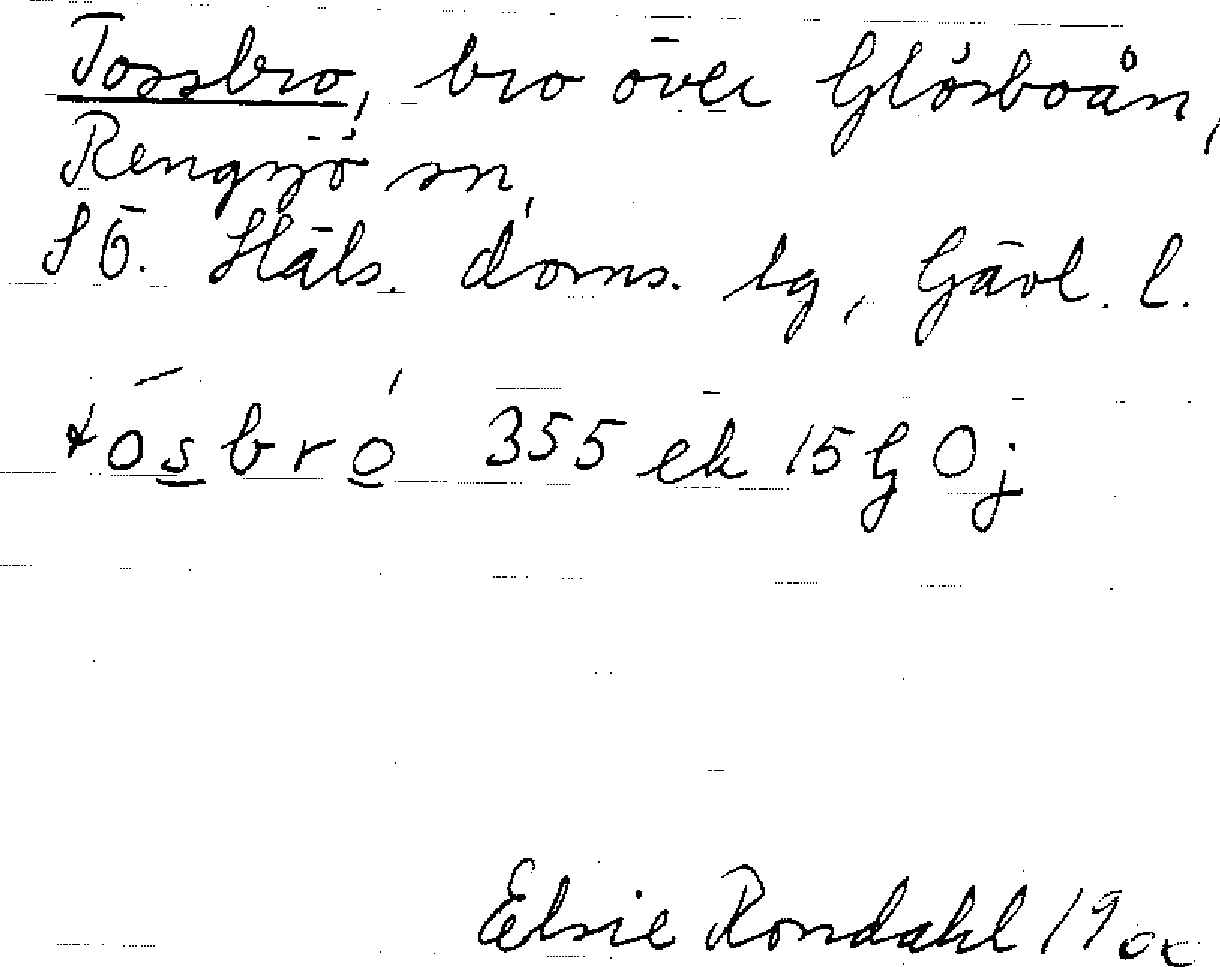 Tossbro, bro över Glösboån,
Rengsjö sn,
SÖ. Häls. doms. lg, Gävl. l.
tósbró 355 ek 15 G Öj
Elsie Rondahl 19